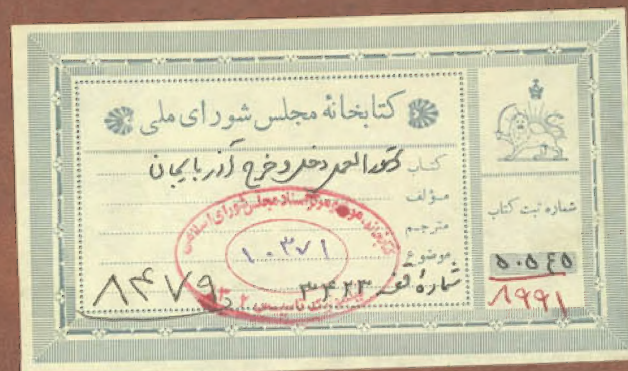 کتابخانهٔ مجلس شورای ملی
کتاب دستورالعمل دخل و خرج آذربایجان
مؤلف
مترجم
موضوع
شمارهٔ قفسه ۳۴۲۳
۸۴۷۹
۱۰۳۷۱
کتابخانه، موزه و مرکز اسناد مجلس شورای اسلامی
تاسیس ۱۳۰۲
شماره ثبت کتاب
۵۰۵۴۵
۸۹۹۱